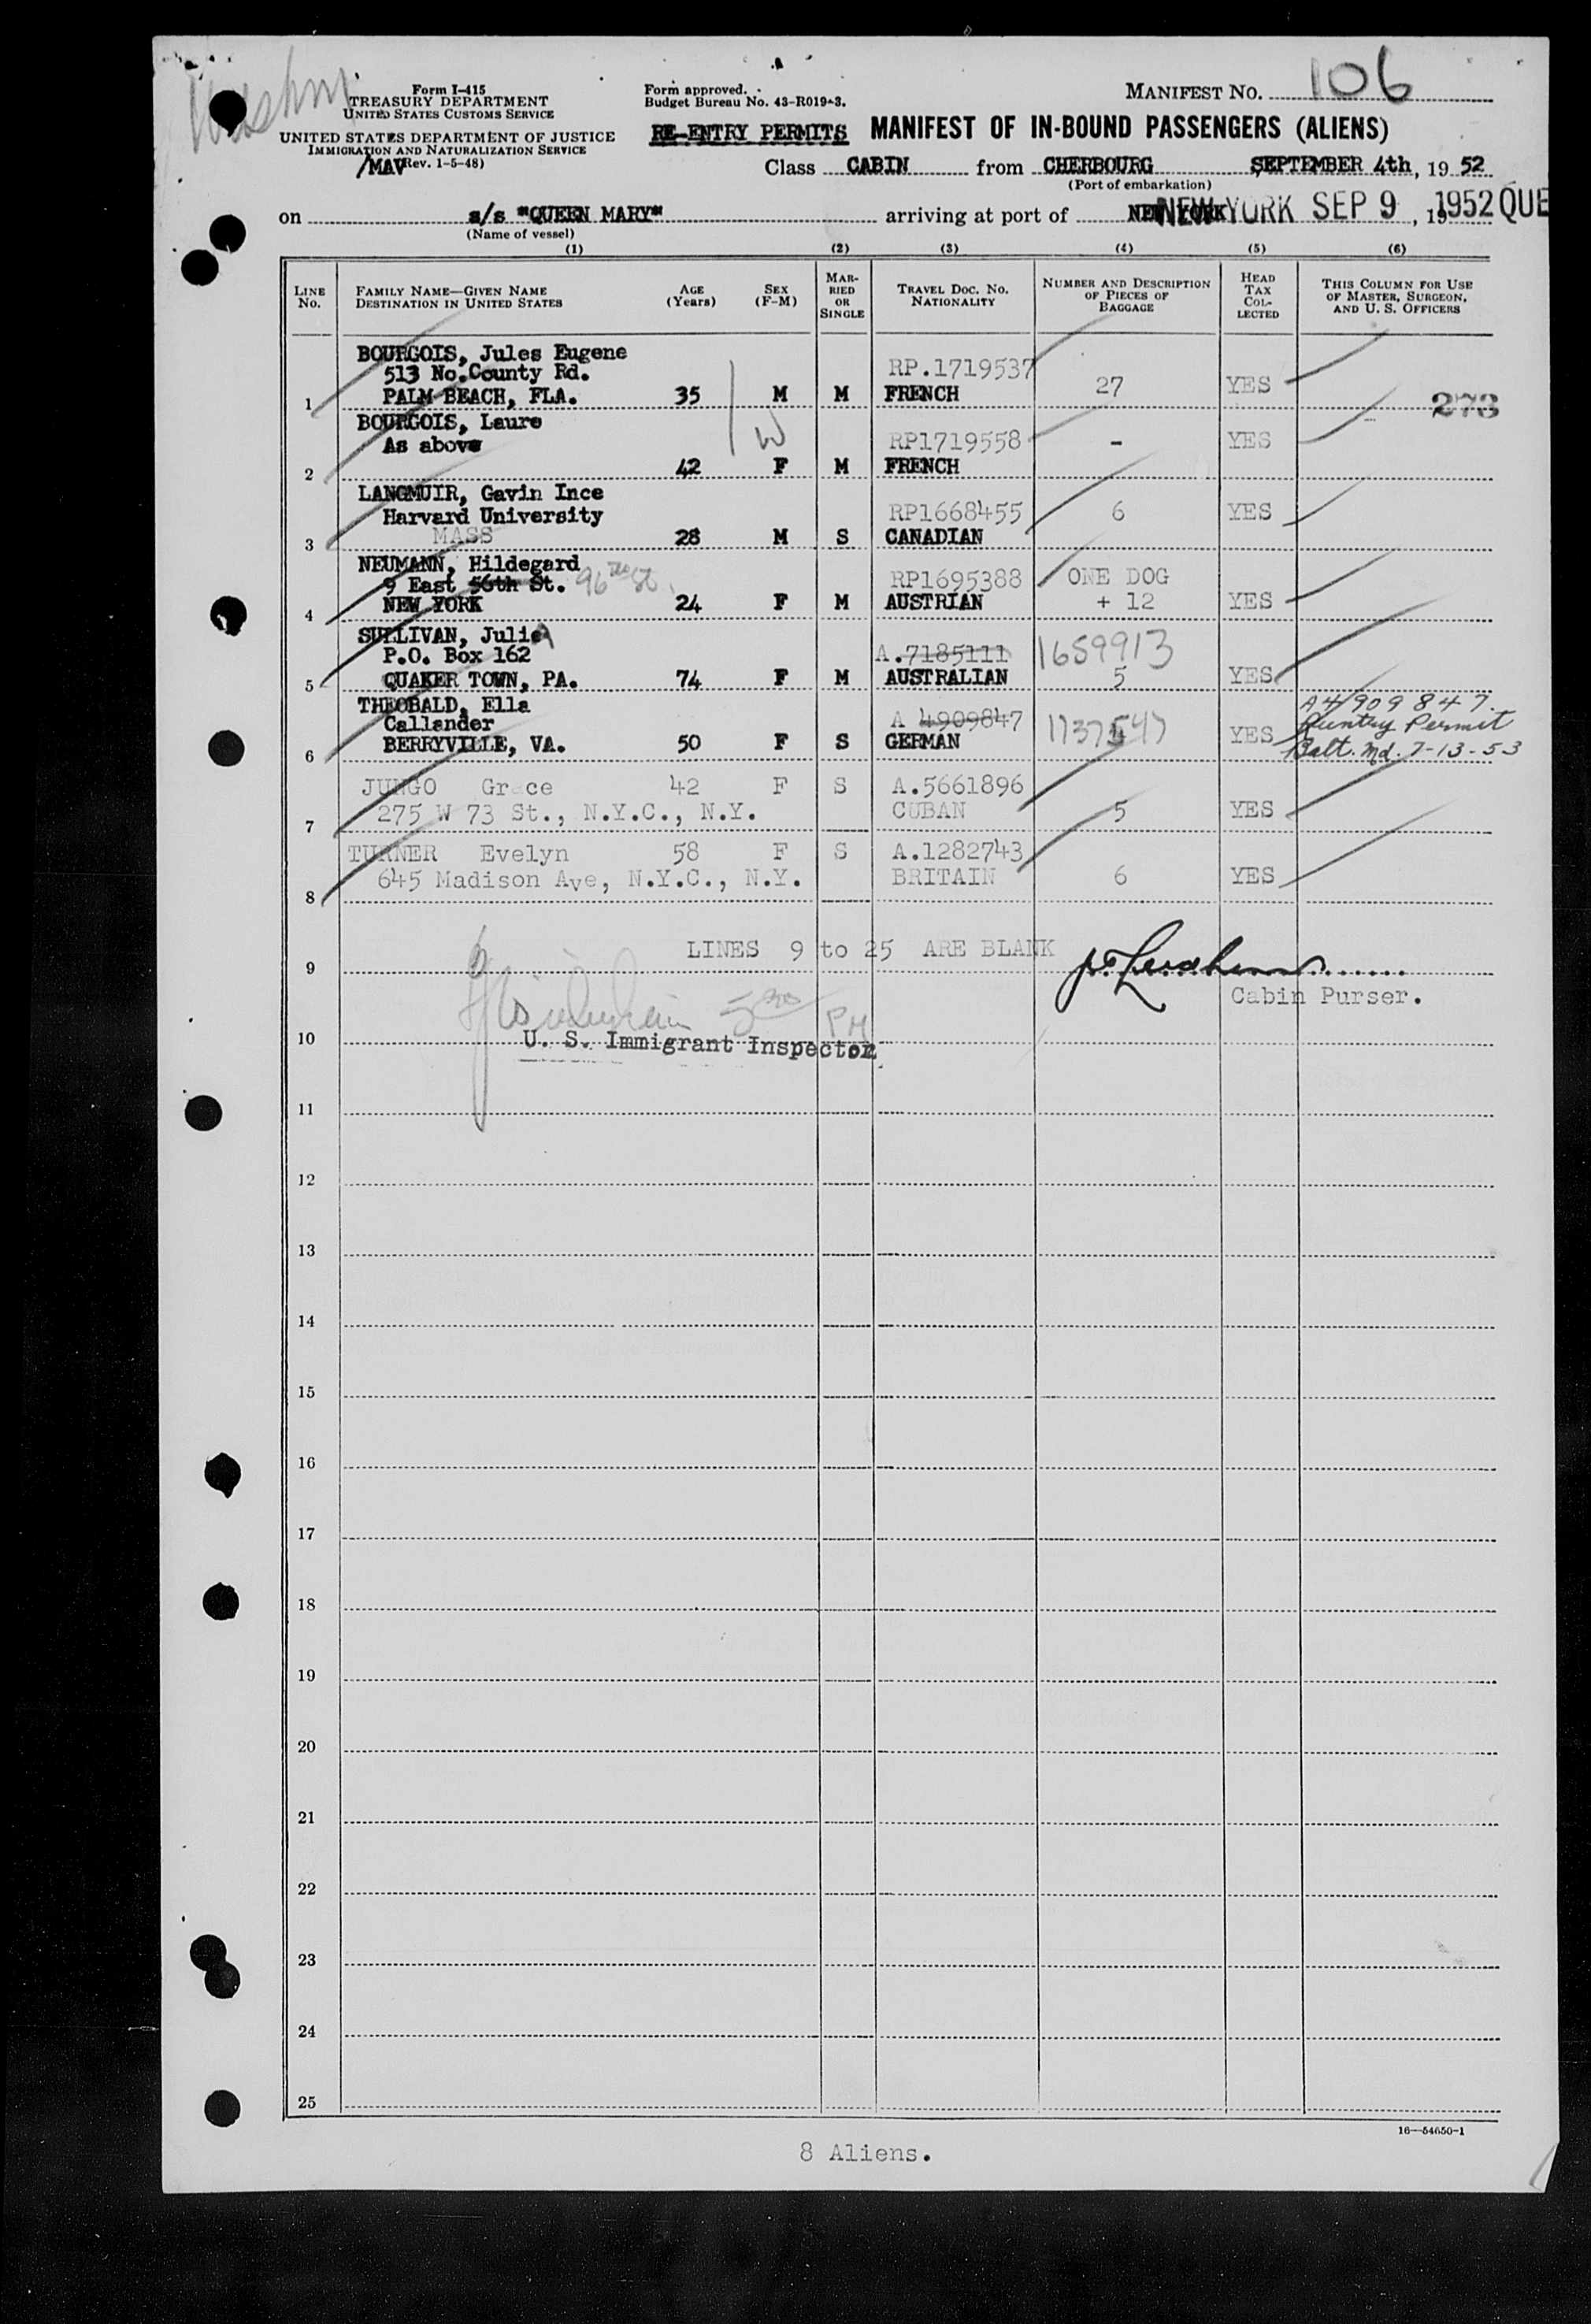 Form I-415
TREASURY DEPARTMENT
UNITED STATES CUSTOMS SERVICE
UNITED STATES DEPARTMENT OF JUSTICE
IMMIGRATION AND NATURALIZATION SERVICE
/MAV (Rev. 1-5-48)
Form approved.
Budget Bureau No. 43-R019-3.
MANIFEST NO. 106
RE-ENTRY PERMITS MANIFEST OF IN-BOUND PASSENGERS (ALIENS)
Class CABIN from CHERBOURG SEPTEMBER 4th, 19 52
(Port of embarkation)
on s/s "QUEEN MARY" arriving at port of NEW YORK NEW YORK SEP 9, 19 1952 QUE
(Name of vessel)
(1) (2) (3) (4) (5) (6)
LINE No. FAMILY NAME—GIVEN NAME DESTINATION IN UNITED STATES AGE (Years) SEX (F-M) MARRIED OR SINGLE TRAVEL DOC. NO. NATIONALITY NUMBER AND DESCRIPTION OF PIECES OF BAGGAGE HEAD TAX COLLECTED THIS COLUMN FOR USE OF MASTER, SURGEON, AND U. S. OFFICERS
BOURGOIS, Jules Eugene
513 No.County Rd. RP.1719537
1 PALM BEACH, FLA. 35 M M FRENCH 27 YES 273
BOURGOIS, Laure
As above W RP1719558 - YES
2 42 F M FRENCH
LANGMUIR, Gavin Ince
Harvard University RP1668455 6 YES
3 MASS 28 M S CANADIAN
NEUMANN, Hildegard
9 East 56th St. 96th St. RP1695388 ONE DOG
4 NEW YORK 24 F M AUSTRIAN + 12 YES
SULLIVAN, Julia
P.O. Box 162 A.7185111 1659913
5 QUAKER TOWN, PA. 74 F M AUSTRALIAN 5 YES
THEOBALD, Ella A4909847.
Callander A 4909847 1737547 Reentry Permit
6 BERRYVILLE, VA. 50 F S GERMAN YES Balt. Md. 7-13-53
JUNGO Grace 42 F S A.5661896
275 W 73 St., N.Y.C., N.Y. CUBAN 5 YES
7
TURNER Evelyn 58 F S A.1282743
645 Madison Ave, N.Y.C., N.Y. BRITAIN 6 YES
8
LINES 9 to 25 ARE BLANK
9
Cabin Purser.
5 30 PM
10 U. S. Immigrant Inspector
11
12
13
14
15
16
17
18
19
20
21
22
23
24
25
16—54650-1
8 Aliens.